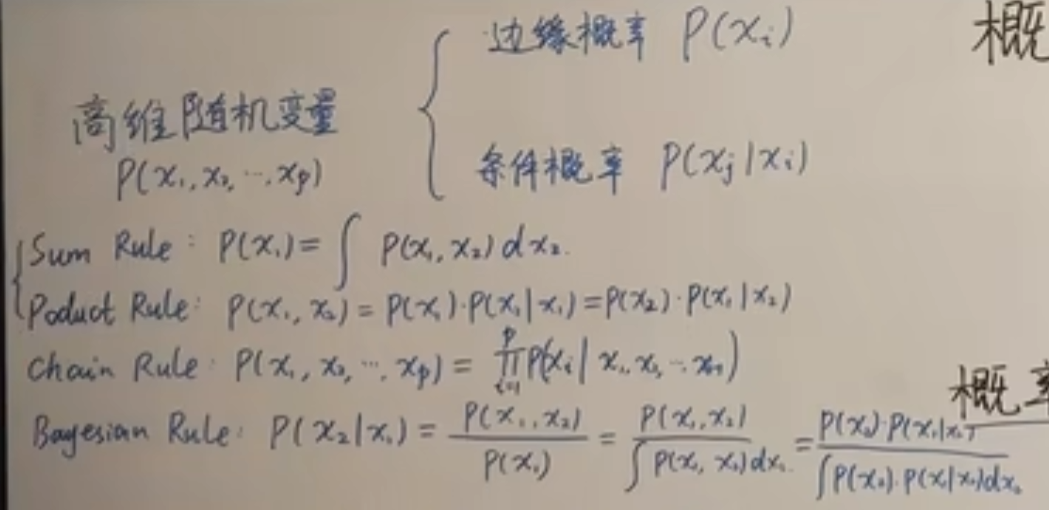 边缘概率 P(x_i)
概
高维随机变量
P(x₁, x₂, ⋯, x_p)
条件概率 P(x_j | x_i)
Sum Rule: P(x₁) = ∫ P(x₁, x₂) dx₂.
Poduct Rule: P(x₁, x₂) = P(x₁)·P(x₂|x₁) = P(x₂)·P(x₁|x₂)
Chain Rule: P(x₁, x₂, ⋯, x_p) = ∏_{i=1}^{p} P(x_i | x₁, x₂, ⋯, x_{i-1})
概率
Bayesian Rule: P(x₂|x₁) = P(x₁, x₂) / P(x₁) = P(x₁, x₂) / ∫ P(x₁, x₂) dx₂ = P(x₂)·P(x₁|x₂) / ∫ P(x₂)·P(x₁|x₂) dx₂